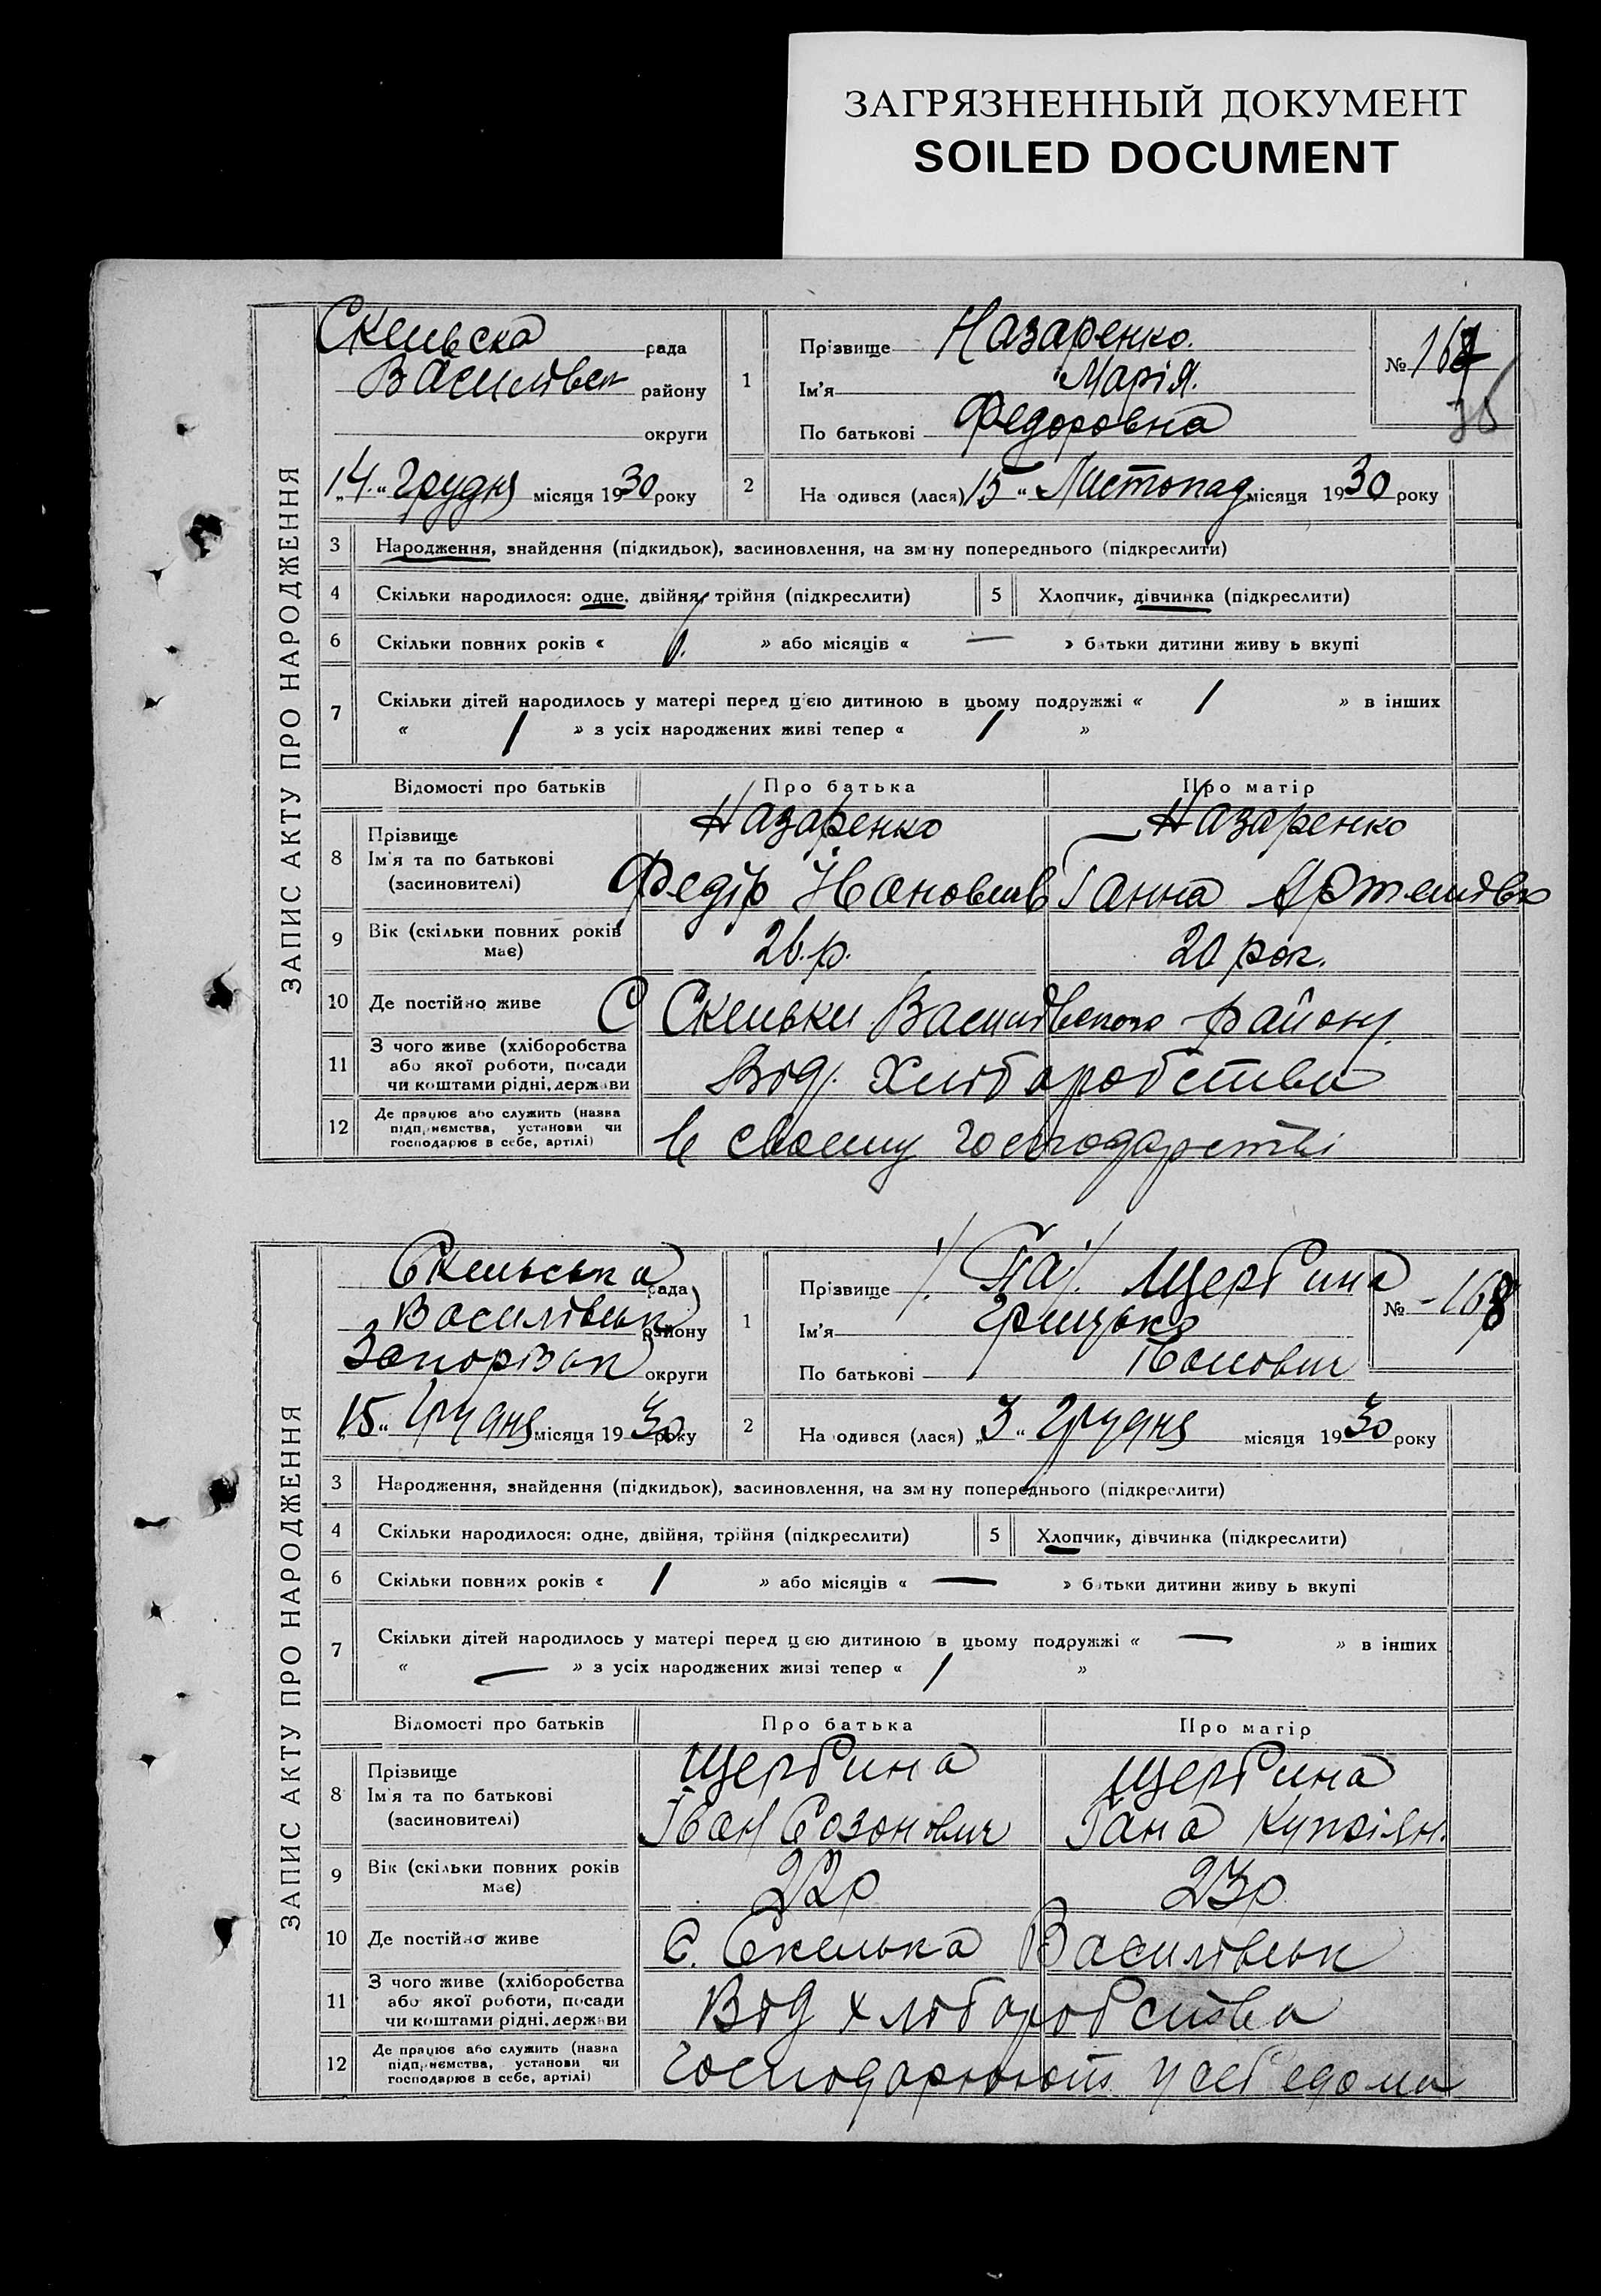 ЗАГРЯЗНЕННЫЙ ДОКУМЕНТ
SOILED DOCUMENT
ЗАПИС АКТУ ПРО НАРОДЖЕННЯ
Скельска рада
Василівск району
округи
„14“ Грудня місяця 1930 року
1 Прізвище Назаренко.
Ім'я Марія.
По батькові Федоровна
№ 167
2 На одився (лася) 15 “ Листопад місяця 1930 року
3 Народження, знайдення (підкидьок), засиновлення, на зм ну попереднього (підкреслити)
4 Скільки народилося: одне, двійня, трійня (підкреслити) 5 Хлопчик, дівчинка (підкреслити)
6 Скільки повних років « 1. » або місяців « — » батьки дитини живу ь вкупі
7 Скільки дітей народилось у матері перед цією дитиною в цьому подружжі « 1 » в інших
« 1 » з усіх народжених живі тепер « 1 »
Відомості про батьків Про батька Про матір
8 Прізвище Назаренко Назаренко
Ім'я та по батькові
(засиновителі) Федір Ивановив Ганна Артемівн
9 Вік (скільки повних років має) 26.р. 20 рок.
10 Де постійно живе С Скельки Василівского району
11 З чого живе (хліборобства
або якої роботи, посади
чи коштами рідні, держави Від. Хліборобства
12 Де працює або служить (назва
підприємства, установи чи
господарює в себе, артілі) в своему господарстві
ЗАПИС АКТУ ПРО НАРОДЖЕННЯ
Скельська рада
Василівськ району
Запорізьк округи
„15“ Грудня місяця 1930 року
1 Прізвище Щербина
Ім'я Грицько
По батькові Іванович
№ -168
2 На одився (лася) „3“ Грудня місяця 1930 року
3 Народження, знайдення (підкидьок), засиновлення, на зм ну попереднього (підкреслити)
4 Скільки народилося: одне, двійня, трійня (підкреслити) 5 Хлопчик, дівчинка (підкреслити)
6 Скільки повних років « 1 » або місяців « — » батьки дитини живу ь вкупі
7 Скільки дітей народилось у матері перед цією дитиною в цьому подружжі « — » в інших
« — » з усіх народжених живі тепер « 1 »
Відомості про батьків Про батька Про матір
8 Прізвище Щербина Щербина
Ім'я та по батькові
(засиновителі) Іван Созонович Гана Купріян.
9 Вік (скільки повних років має) 22р 23р
10 Де постійно живе С. Скелька Василівськ
11 З чого живе (хліборобства
або якої роботи, посади
чи коштами рідні, держави Від хліборобства
12 Де працює або служить (назва
підприємства, установи чи
господарює в себе, артілі) господарюють у себе дома